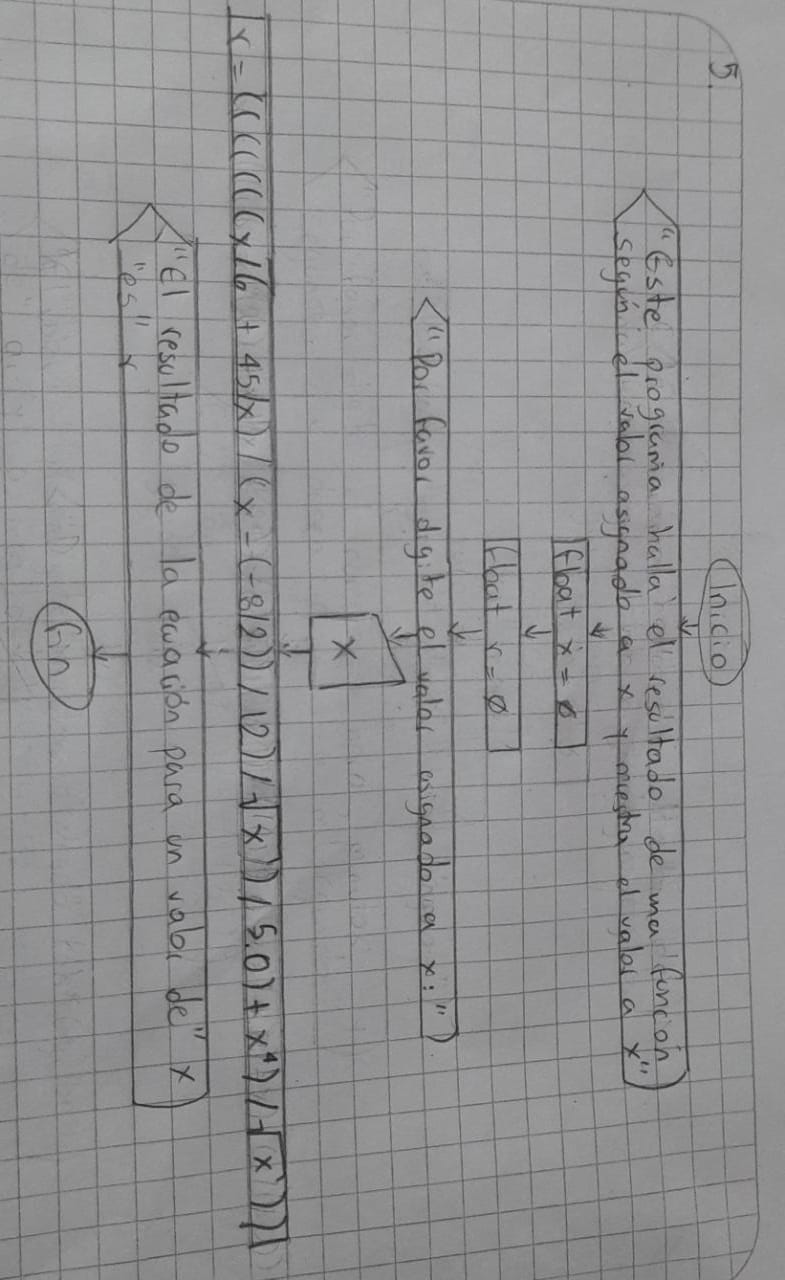 5.
Inicio
"Este programa halla el resultado de una funcion
según el valor asignado a x y muestra el valor a x"
float x = 0
float r = 0
"Por favor digite el valor asignado a x:"
x
r = ((((((x/6 + 45/x) / (x - (-8/2)) / 12) / √(x)) / 5.0) + x⁴) / √(x)))
"El resultado de la ecuación para un valor de" x
"es" r
fin